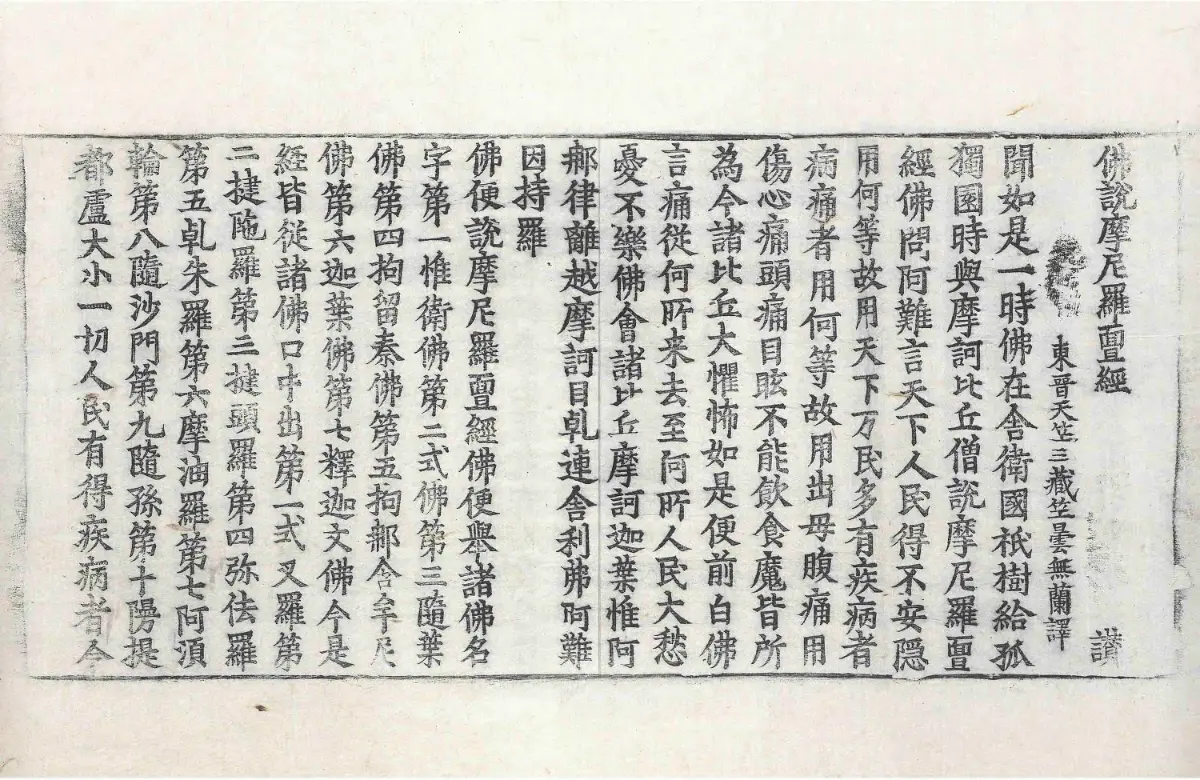 佛說摩尼羅亶經　讃
東晉天竺三藏竺曇無蘭譯
聞如是一時佛在舍衛國祇樹給孤
獨園時與摩訶比丘僧說摩尼羅亶
經佛問阿難言天下人民得不安隱
用何等故用天下万民多有疾病者
病痛者用何等故用出母腹痛用
傷心痛頭痛目眩不能飲食魔皆所
為今諸比丘大懼怖如是便前白佛
言痛從何所来去至何所人民大愁
憂不樂佛會諸比丘摩訶迦葉惟阿
郍律離越摩訶目乹連舍利弗阿難
因持羅
佛便說摩尼羅亶經佛便舉諸佛名
字第一惟衛佛第二式佛第三隨葉
佛第四拘留秦佛第五拘郍含牟尼
佛第六迦葉佛第七釋迦文佛今是
經皆従諸佛口中出第一式叉羅第
二揵陁羅第三揵頭羅第四弥佉羅
第五乹朱羅第六摩油羅第七阿湏
輪第八隨沙門第九隨孫第十陽提
都盧大小一切人民有得疾病者今